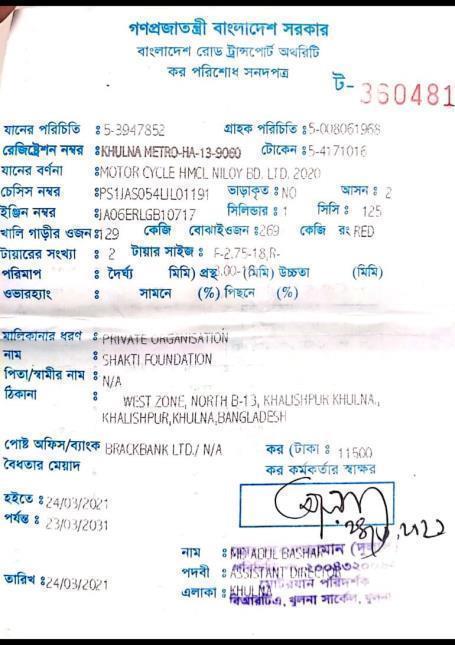 গণপ্রজাতন্ত্রী বাংলাদেশ সরকার
বাংলাদেশ রোড ট্রান্সপোর্ট অথরিটি
কর পরিশোধ সনদপত্র
ট- 360481
যানের পরিচিতি : 5-3947852 গ্রাহক পরিচিতি : 5-008061968
রেজিষ্ট্রেশন নম্বর : KHULNA METRO-HA-13-9060 টোকেন : 5-4171016
যানের বর্ণনা : MOTOR CYCLE HMCL NILOY BD. LTD. 2020
চেসিস নম্বর : PS1JAS054LJL01191 ভাড়াকৃত : NO আসন : 2
ইঞ্জিন নম্বর : JA06ERLGB10717 সিলিন্ডার : 1 সিসি : 125
খালি গাড়ীর ওজন : 129 কেজি বোঝাইওজন : 269 কেজি রং RED
টায়ারের সংখ্যা : 2 টায়ার সাইজ : F-2.75-18,R-
পরিমাপ : দৈর্ঘ্য মিমি) প্রস্থ .00-1 (মিমি) উচ্চতা (মিমি)
ওভারহ্যাং : সামনে (%) পিছনে (%)
মালিকানার ধরণ : PRIVATE ORGANISATION
নাম : SHAKTI FOUNDATION
পিতা/স্বামীর নাম : N/A
ঠিকানা : WEST ZONE, NORTH B-13, KHALISHPUR KHULNA.,
KHALISHPUR,KHULNA,BANGLADESH
পোষ্ট অফিস/ব্যাংক BRACKBANK LTD./ N/A কর (টাকা : 11500
বৈধতার মেয়াদ কর কর্মকর্তার স্বাক্ষর
হইতে : 24/03/2021
পর্যন্ত : 23/03/2031
নাম : MD ABUL BASHAR
পদবী : ASSISTANT DIRECTOR
মোটরযান পরিদর্শক
তারিখ : 24/03/2021 এলাকা : KHULNA
বিআরটিএ, খুলনা সার্কেল, খুলনা